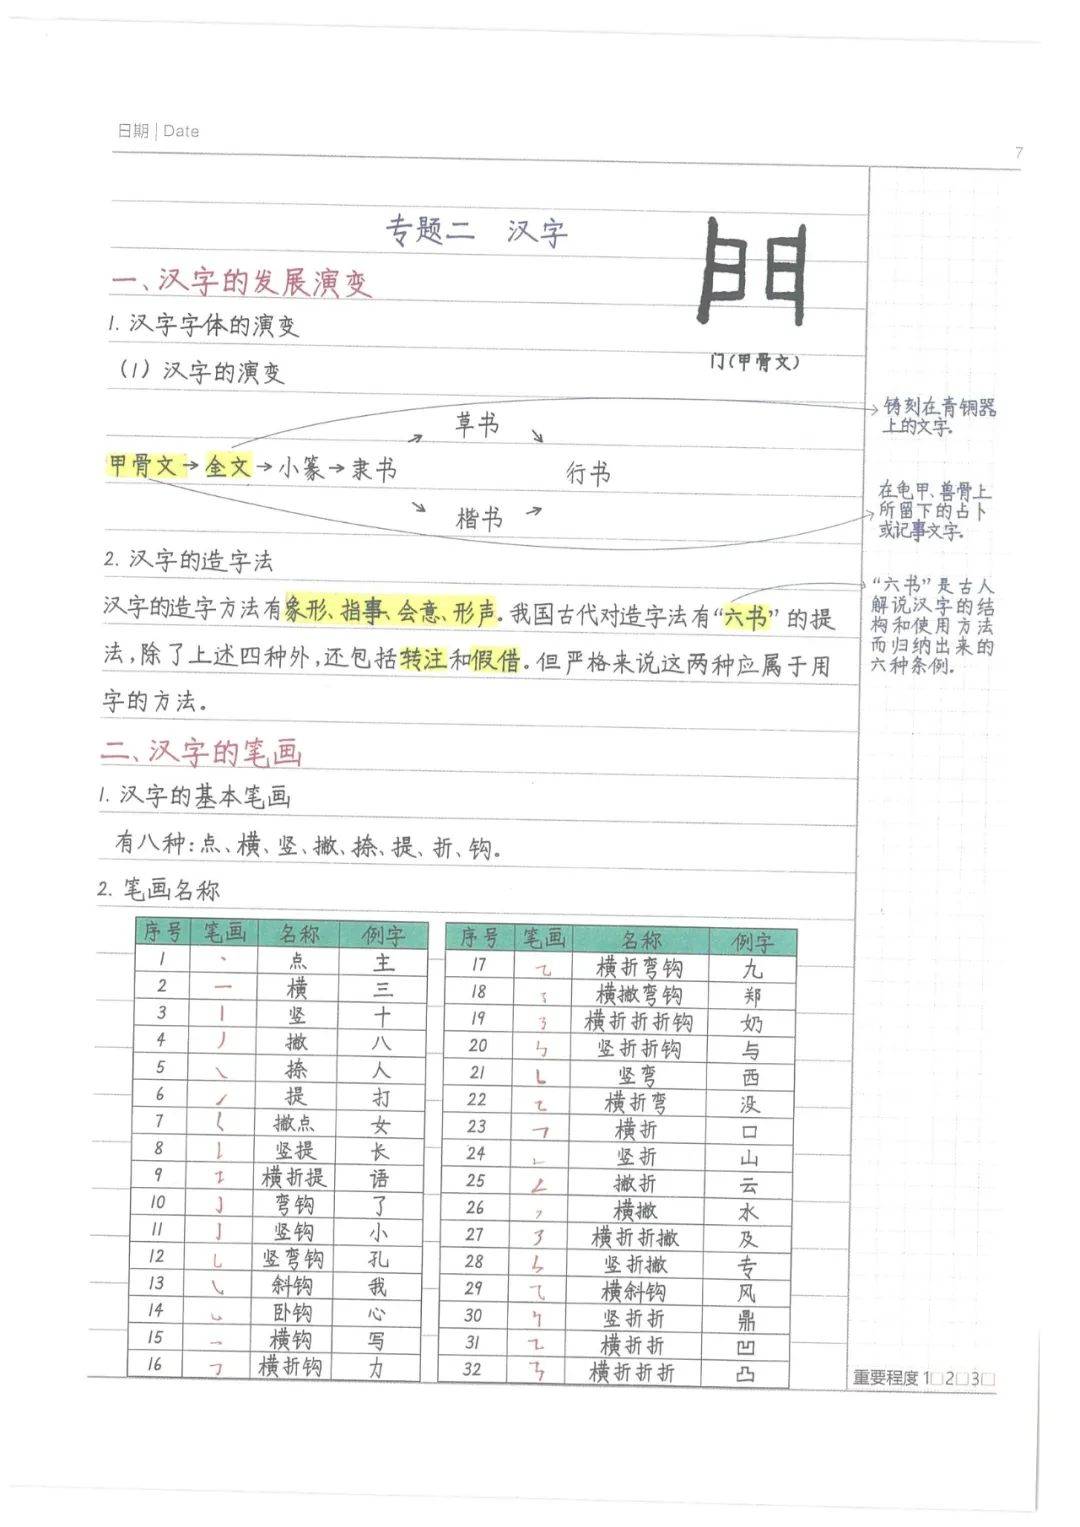 日期 | Date
7
专题二 汉字
一、汉字的发展演变
1. 汉字字体的演变
门(甲骨文)
(1) 汉字的演变
铸刻在青铜器
上的文字。
草书
甲骨文→金文→小篆→隶书
行书
楷书
在龟甲、兽骨上
所留下的占卜
或记事文字。
2. 汉字的造字法
汉字的造字方法有象形、指事、会意、形声。我国古代对造字法有“六书”的提
法,除了上述四种外,还包括转注和假借。但严格来说这两种应属于用
字的方法。
“六书”是古人
解说汉字的结
构和使用方法
而归纳出来的
六种条例。
二、汉字的笔画
1. 汉字的基本笔画
有八种:点、横、竖、撇、捺、提、折、钩。
2. 笔画名称
序号 笔画 名称 例字
1 丶 点 主
2 一 横 三
3 丨 竖 十
4 丿 撇 八
5 ㇏ 捺 人
6 ㇀ 提 打
7 𡿨 撇点 女
8 𠄌 竖提 长
9 ㇊ 横折提 语
10 ㇁ 弯钩 了
11 亅 竖钩 小
12 乚 竖弯钩 孔
13 ㇂ 斜钩 我
14 ㇃ 卧钩 心
15 ㇖ 横钩 写
16 ㇆ 横折钩 力
序号 笔画 名称 例字
17 ㇈ 横折弯钩 九
18 ㇌ 横撇弯钩 郑
19 ㇡ 横折折折钩 奶
20 ㇉ 竖折折钩 与
21 ㇄ 竖弯 西
22 ㇍ 横折弯 没
23 ㇕ 横折 口
24 ㇗ 竖折 山
25 ㇜ 撇折 云
26 ㇇ 横撇 水
27 ㇋ 横折折撇 及
28 ㇞ 竖折撇 专
29 ⺄ 横斜钩 风
30 ㇞ 竖折折 鼎
31 ㇅ 横折折 凹
32 ㇎ 横折折折 凸
重要程度 1□2□3□